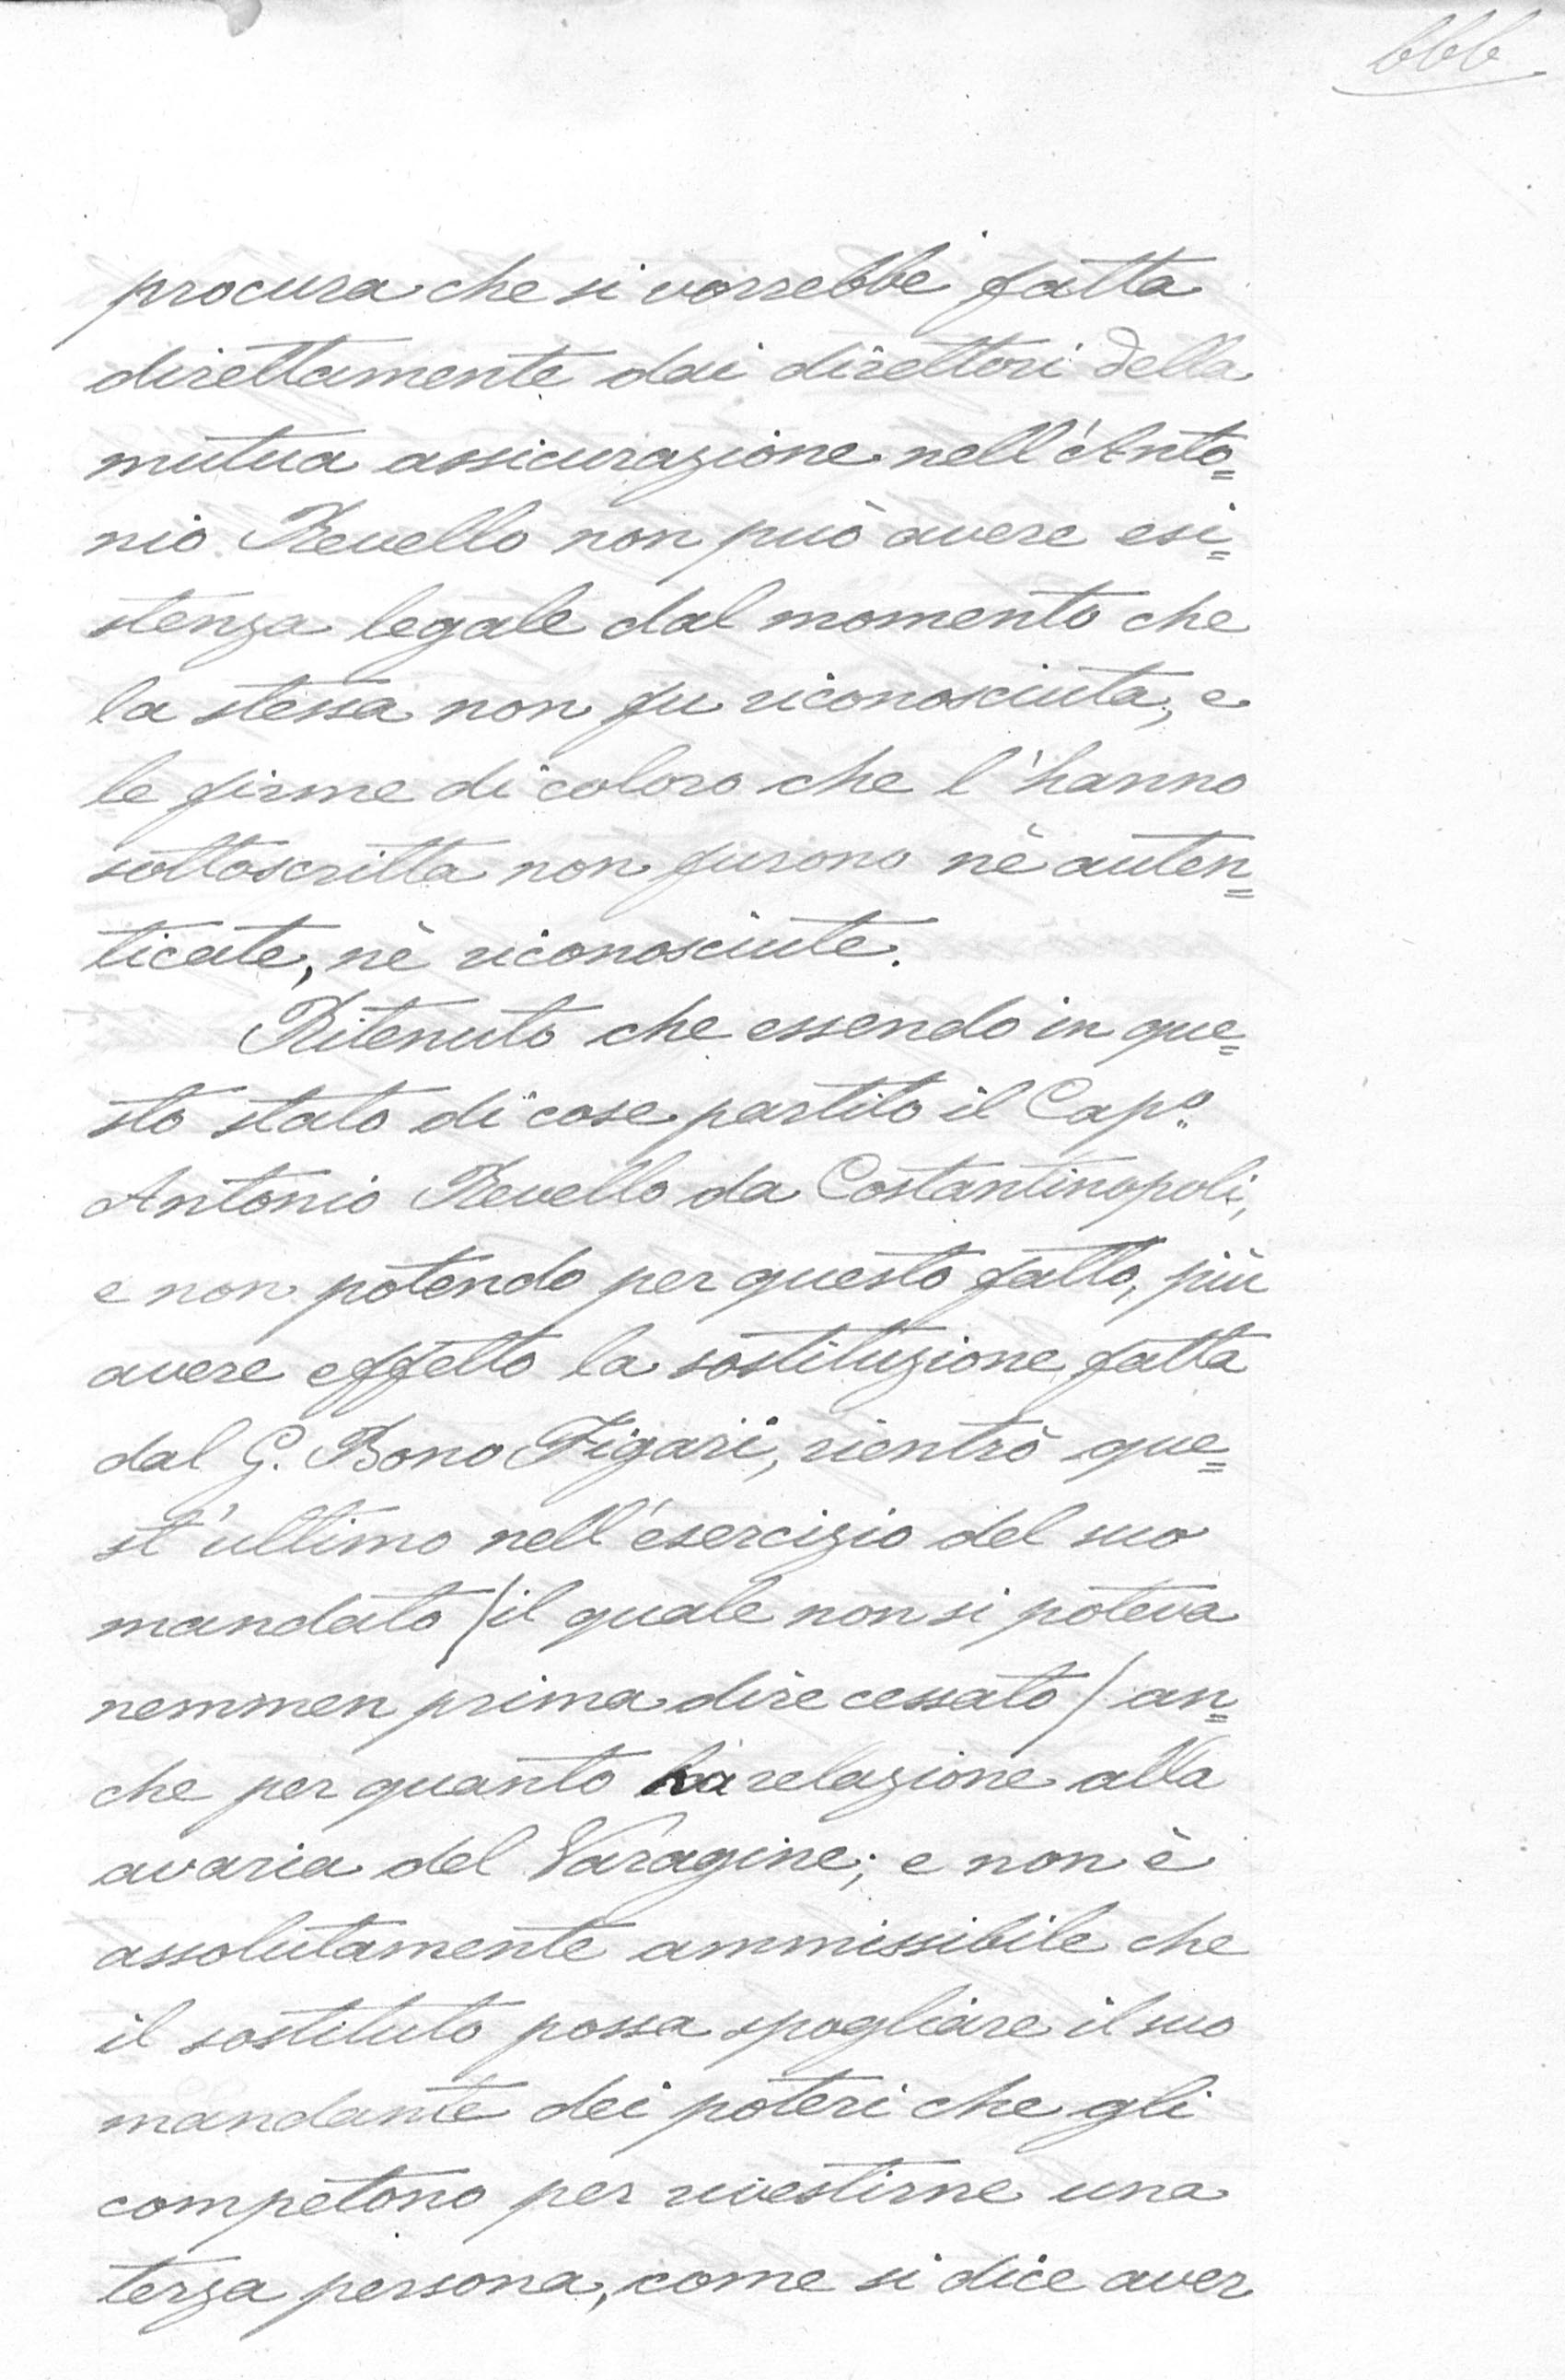 666
procura che si vorrebbe fatta
direttamente dai direttori della
mutua assicurazione nell'Anto=
nio Revello non può avere esi=
stenza legale dal momento che
la stessa non fu riconosciuta, e
le firme di coloro che l'hanno
sottoscritta non furono nè auten=
ticate, nè riconosciute.
Ritenuto che essendo in que=
sto stato di cose partito il Cap.º
Antonio Revello da Costantinopoli,
e non potendo per questo fatto, più
avere effetto la sostituzione fatta
dal G. Bono Figari, rientrò que=
st'ultimo nell'esercizio del suo
mandato /il quale non si poteva
nemmen prima dire cessato/ an=
che per quanto ha relazione alla
avaria del Varagine; e non è
assolutamente ammissibile che
il sostituto possa spogliare il suo
mandante dei poteri che gli
competono per rivestirne una
terza persona, come si dice aver